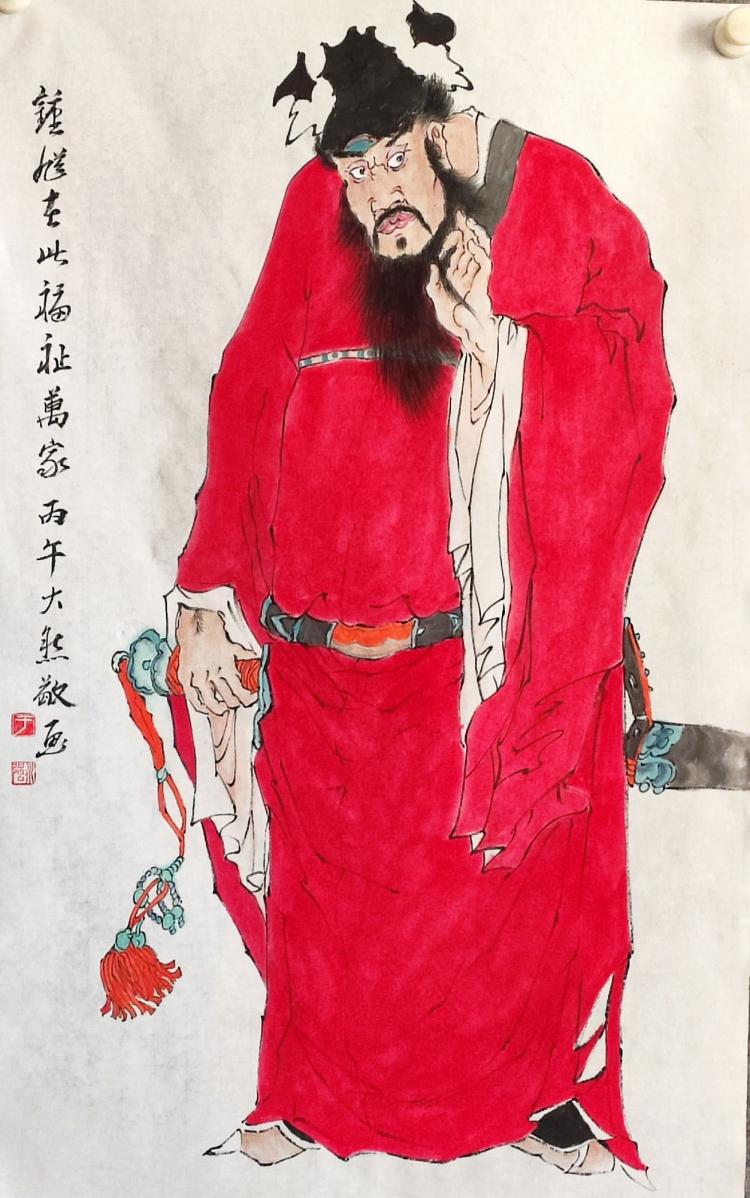 鍾馗在此福祉萬家丙午大熊敬画
于